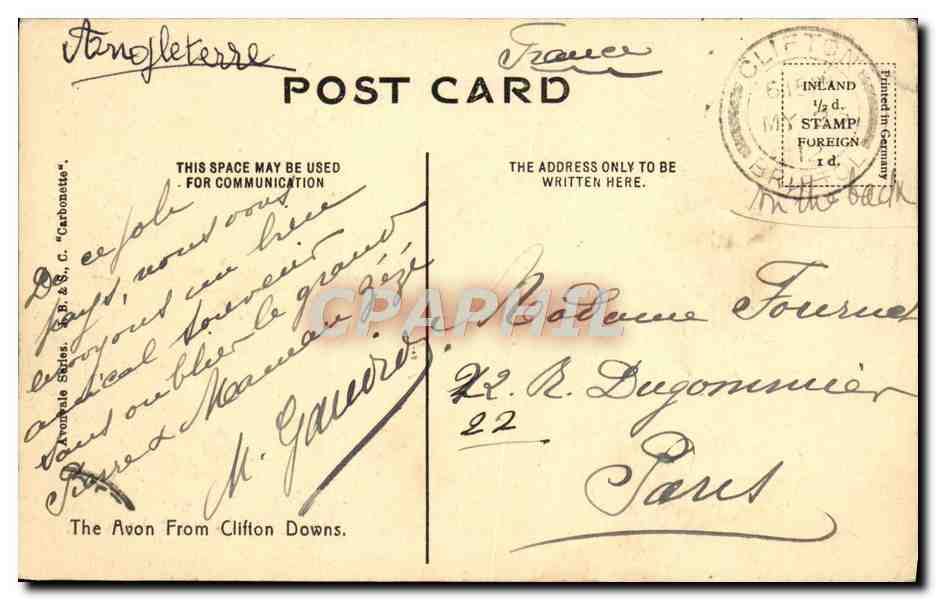 Angleterre
France
POST CARD
CLIFTON
BRISTOL
MY
INLAND
½ d.
STAMP
FOREIGN
1 d.
Printed in Germany
On the back
THIS SPACE MAY BE USED
FOR COMMUNICATION
THE ADDRESS ONLY TO BE
WRITTEN HERE.
Avonvale Series. B. & S., C. "Carbonette".
De ce joli
pays, nous vous
envoyons un bien
amical souvenir
sans oublier le grand
Pierre & Maman Zézé
M.
Madame Fournet
22 R. Dugommier
22
Paris
The Avon From Clifton Downs.
CPAPHIL